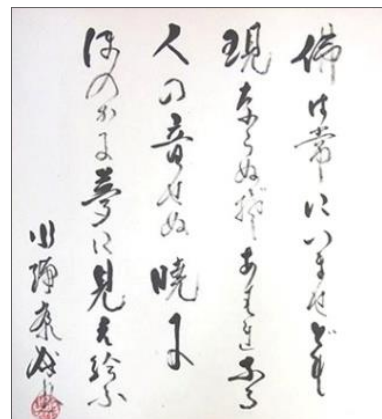 佛は常にいませども
現ならぬぞあはれなる
人の音せぬ暁に
ほのかに夢に見え給ふ